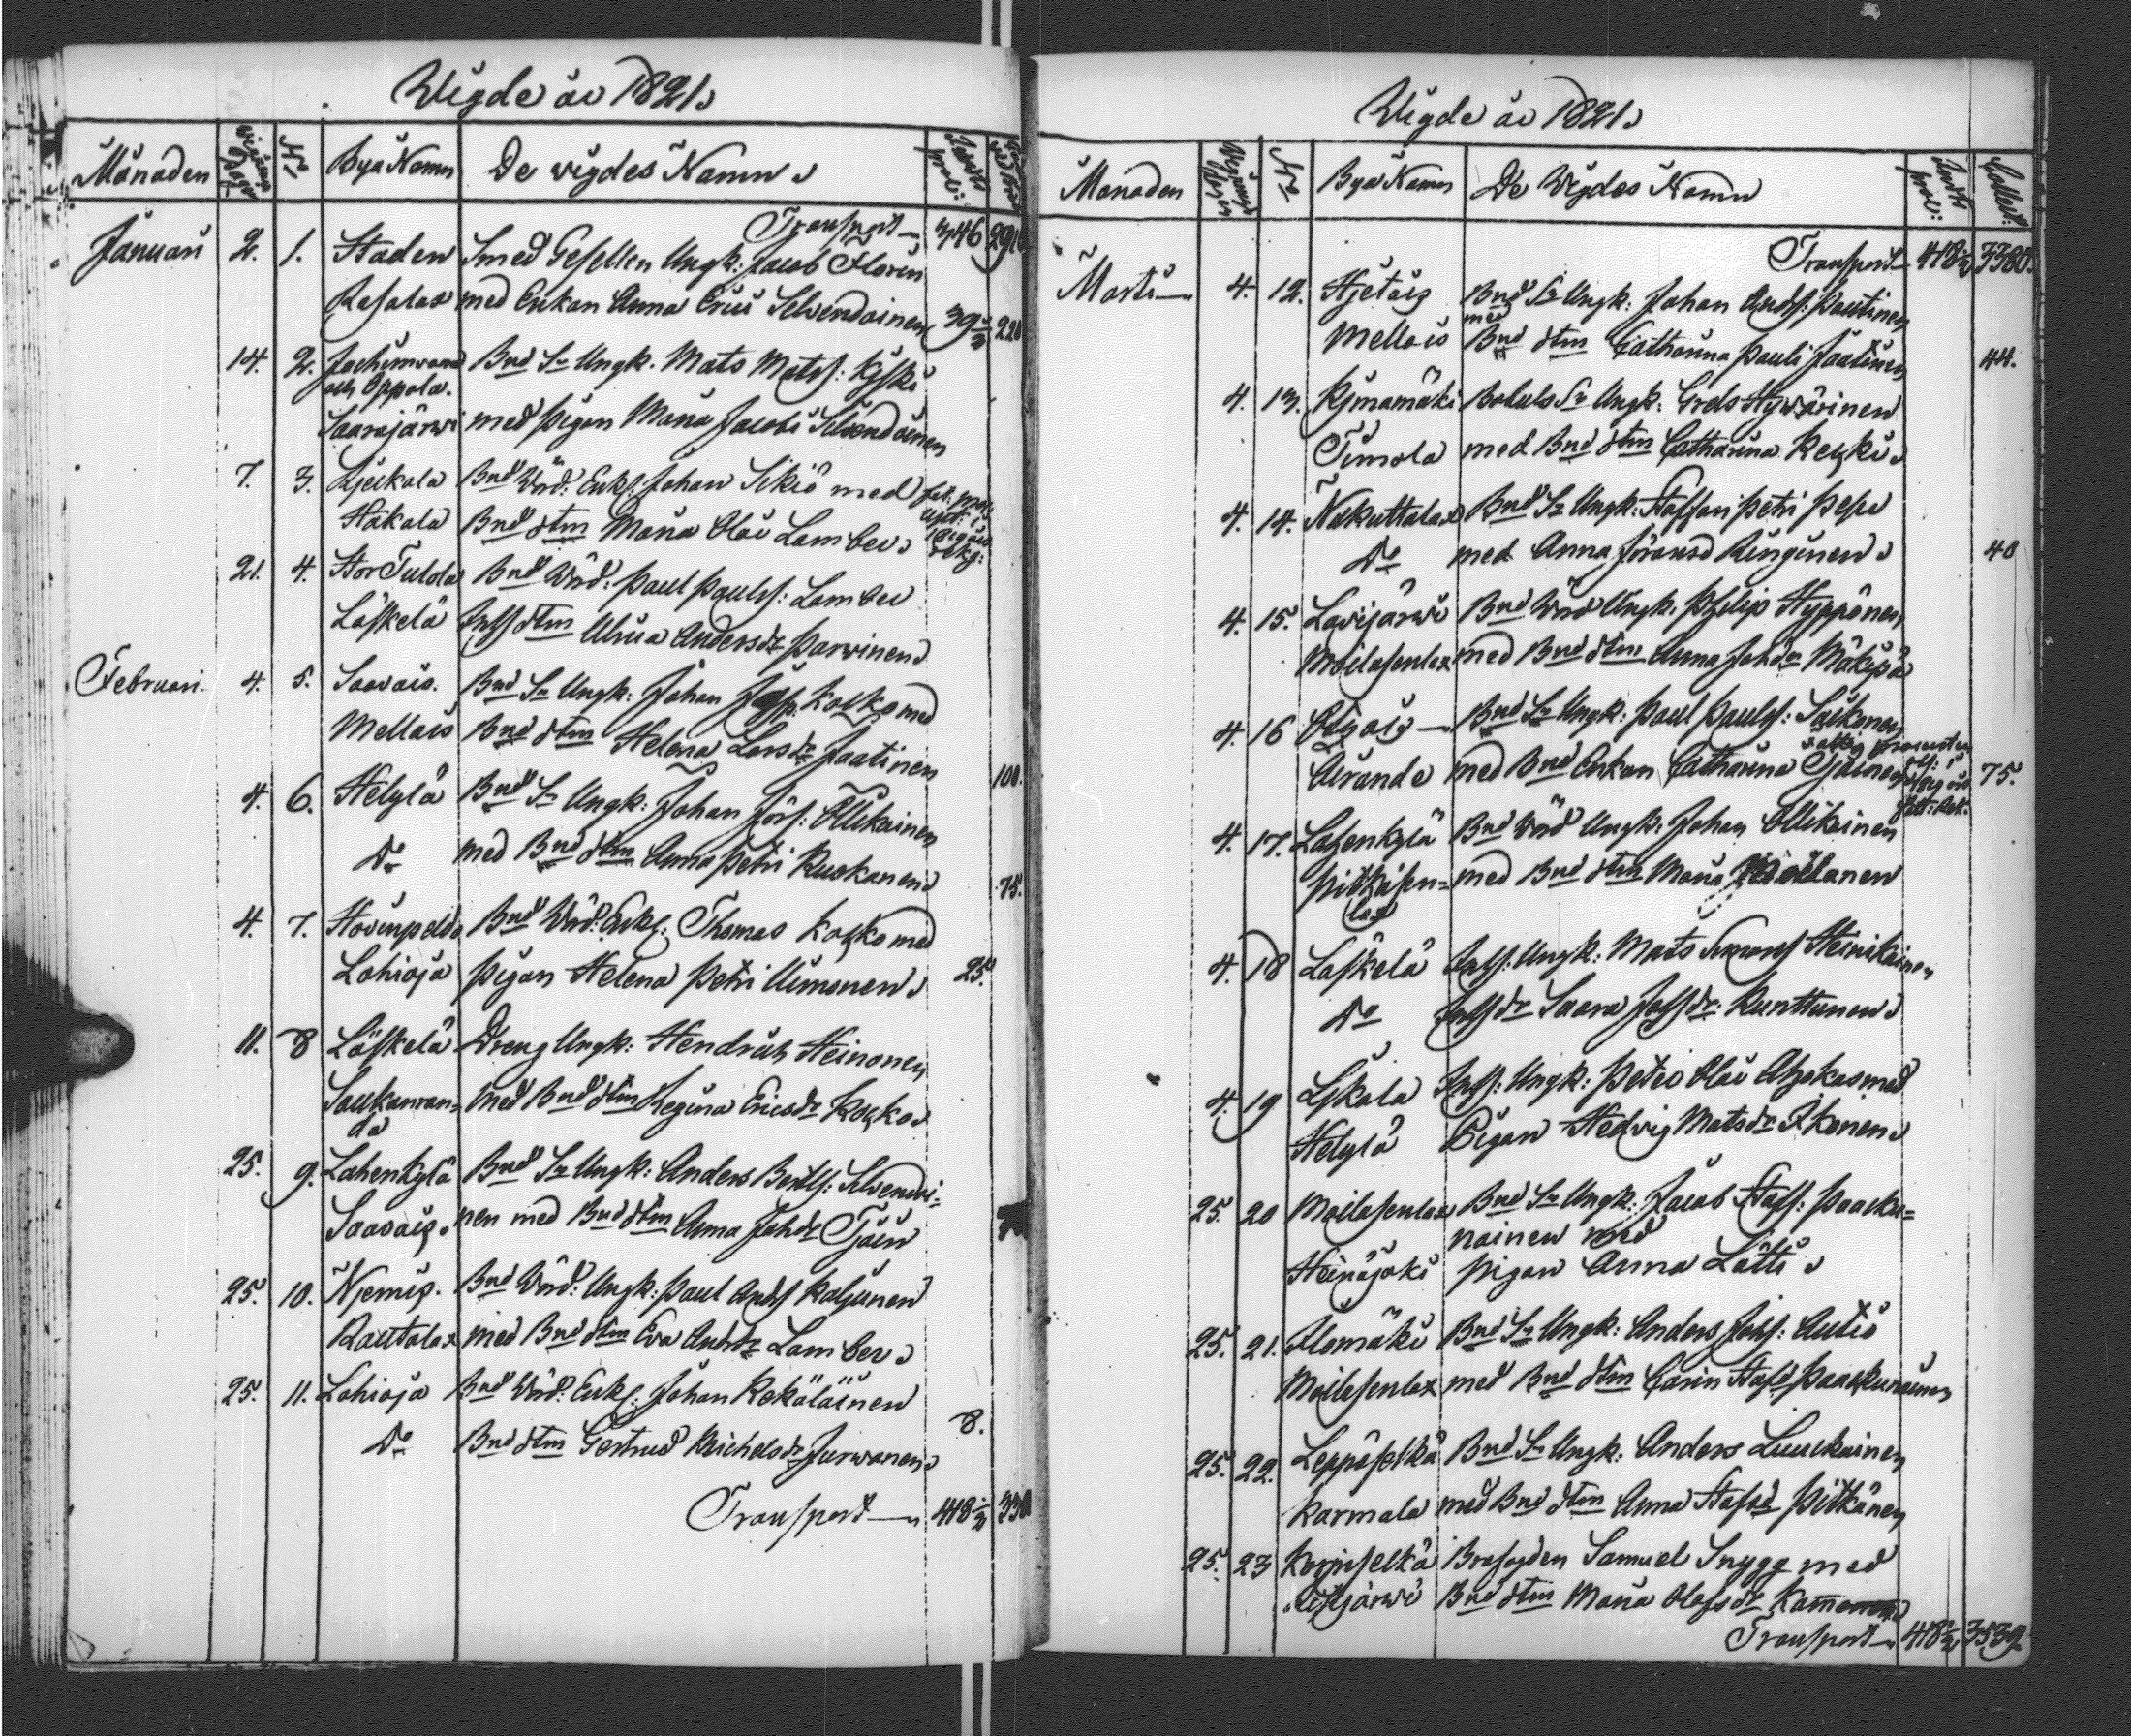 Wigde år 1821.
Månaden Wigning Dagen No Bya Namn De wigdes Namn.
Transport 346
Januari 2. 1. Staden Smed Gesellen Ungk: Jacob Florin
Rasalax med Enkan Anna Erici Silvendoinen 39
14. 2. Jachimvaara Bnd Sn Ungk. Mats Matss: Kiiski
och Oppola.
Saarajärwi med Pigan Maria Jacobi Silvendoinen
7. 3. Kjerkala Bnd Wärd: Enkl: Johan Sikiö med
Häkala Bnd dtm Maria Olai Lamberg
21. 4. Stor Tulola Bnd Wärd: Paul Paulss: Lamberg
Läskelä Inhs dtm Ulrica Andersdr Parwinen
Februari. 4. 5. Saavais. Bnd Sn Ungk: Johan Kockko med
Mellois Bnd dtm Helena Larsdr Jaatinen
100.
4. 6. Helylä Bnd Sn Ungk: Johan Jörs: Ollikainen
Do med Bnd dtm Anna Petri Ruokanen
75.
4. 7. Hovinpeldo Bnd Wärd: Enkl: Thomas Kockko med
Lohioja Pigan Helena Petri Uimonen 25.
11. 8 Läskelä Dreng Ungk: Hendrich Heinonen
Soukanran= med Bnd dtm Regina Ericsdr Kockko
da
25. 9. Lahenkylä Bnd Sn Ungk: Anders Bertls: Silvendoi=
Saavais. nen med Bnd dtm Anna Johdr Tjäin
25. 10. Njemis. Bnd Wärd: Ungk: Paul Ands Kaljunen
Rautalax med Bnd dtm Eva Andsdr Lamberg
25. 11. Lohioja Bnd Wärd: Enkl: Johan Rekäläinen
8.
Do Bnd dtm Gertrud Michelsdr Jurwanen
Transport 418½ 338
Wigde år 1821.
Månaden Wignings dagen No Bya Namn De Wigdes Namn Collect:
Transport 418½ 3380.
Marti 4. 12. Hjetais Bnd Sn Ungk: Johan Andss: Pautinen
med
Mellois Bnd dtm Catharina Pauli Jaatinen 44.
4. 13. Kjmamäki Bobuls Sn Ungk: Grels Hyvärinen
Timola med Bnd dtm Catharina Kecki
4. 14. Nukuttalax Bnd Sn Ungk: Staffan Petri Pesu
Do med Anna Göransd Ringinen 40
4. 15. Lavijärwi Bnd Wärd Ungk: Philip Hyppönen
Moilasenlax med Bnd dtm Anna Johdr Mäkipä
4. 16 Otsois Bnd Sn Ungk: Paul Paulss: Saikonen
Airanda med Bnd Enkan Catharina 75.
4. 17. Lahenkylä Bnd Wärd Ungk: Johan Ollikainen
Pitkäsen= med Bnd dtm Maria
lax
4. 18 Läskelä Inhs: Ungk: Mats Simonss Heinikainen
Do Inhs dr Saara Johsdr: Kunttunen
4. 19 Leskala Inhs: Ungk: Peter Olai Ahokas med
Helylä Pigan Hedvig Matsdr Ikonen
25. 20 Moilasenlax Bnd Sn Ungk: Jacob Stafs: Paacku=
nainen med
Heinäjoki Pigan Anna Lätti
25. 21. Ilomäki Bnd Sn Ungk: Anders Johs: Autio
Moilasenlax med Bnd dtm Carin Stafsd Paackunainen
25. 22. Leppäselkä Bnd Sn Ungk: Anders Luuckainen
Karmala med Bnd dtm Anna Stafsd Pitkänen
25. 23 Korpiselkä Brofogden Samuel Snygg med
Bnd dtm Maria Olofsdr
Transport 418½ 3539